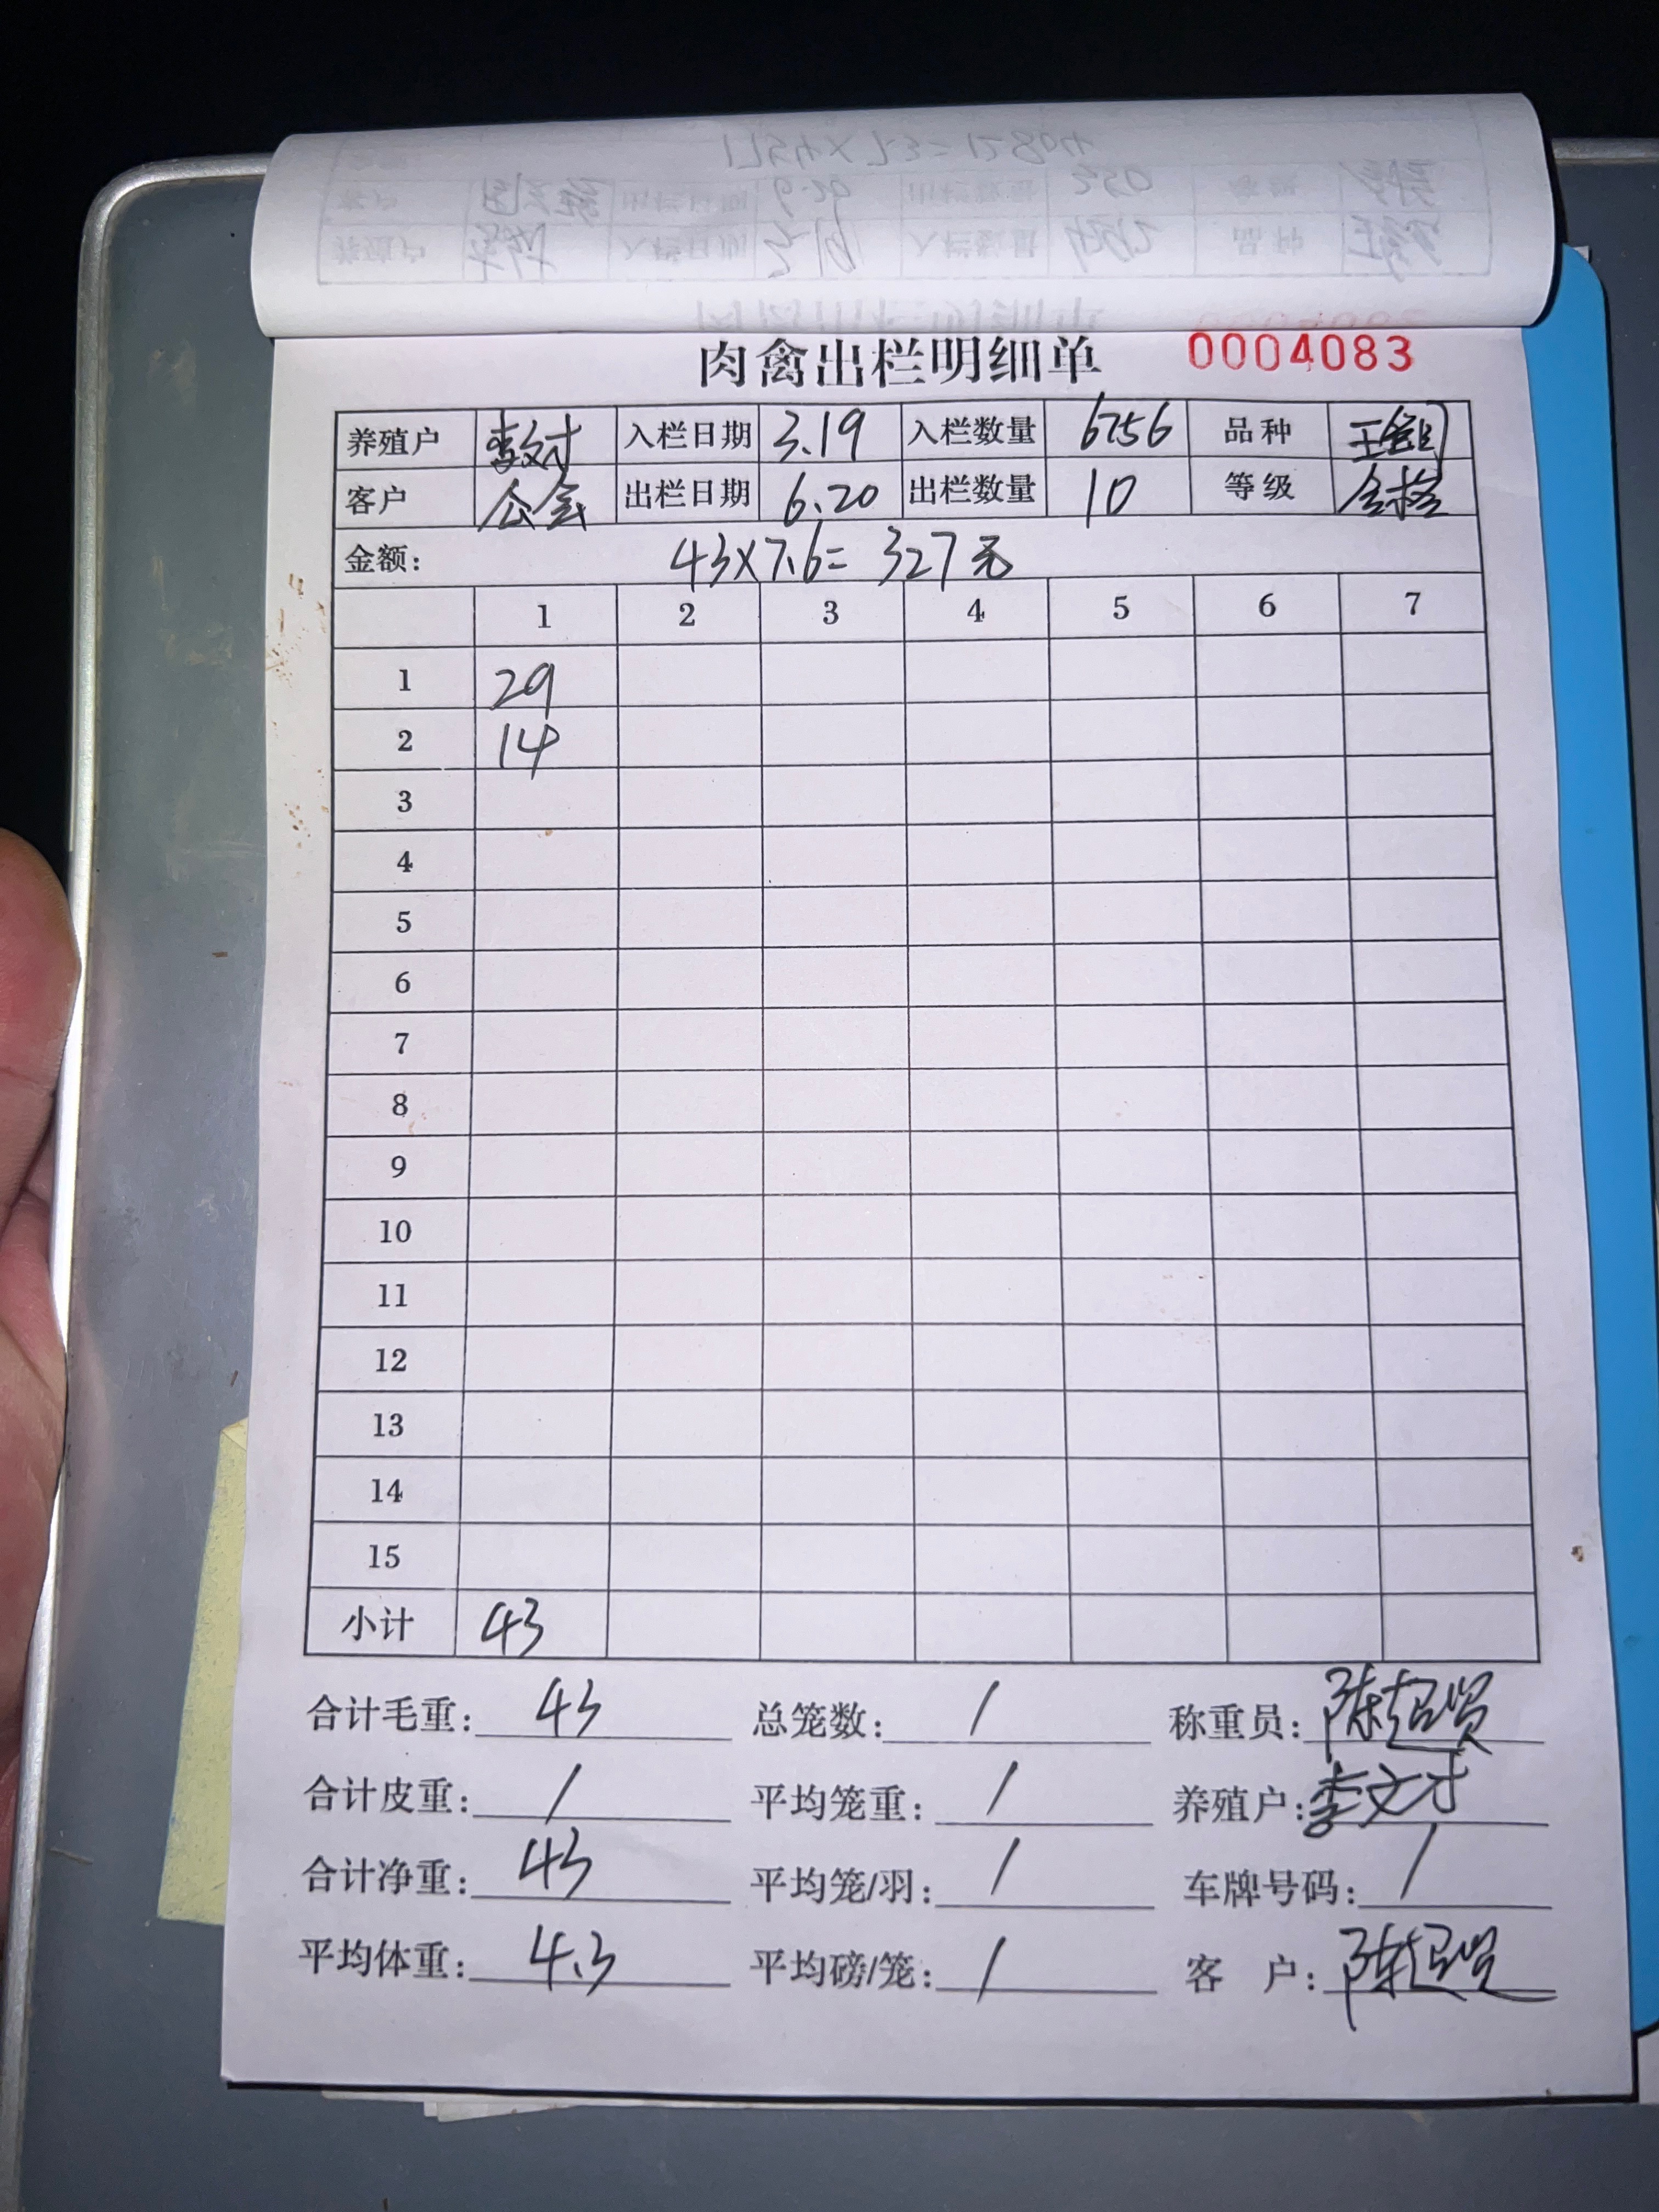 肉禽出栏明细单 0004083
养殖户 李文才 入栏日期 3.19 入栏数量 6756 品种
客户 公会 出栏日期 6.20 出栏数量 10 等级 合格
金额: 43×7.6= 327元
1 2 3 4 5 6 7
1 29
2 14
3
4
5
6
7
8
9
10
11
12
13
14
15
小计 43
合计毛重: 43 总笼数: / 称重员: 陈超贤
合计皮重: / 平均笼重: / 养殖户: 李文才
合计净重: 43 平均笼/羽: / 车牌号码: /
平均体重: 4.3 平均磅/笼: / 客 户: 陈超贤